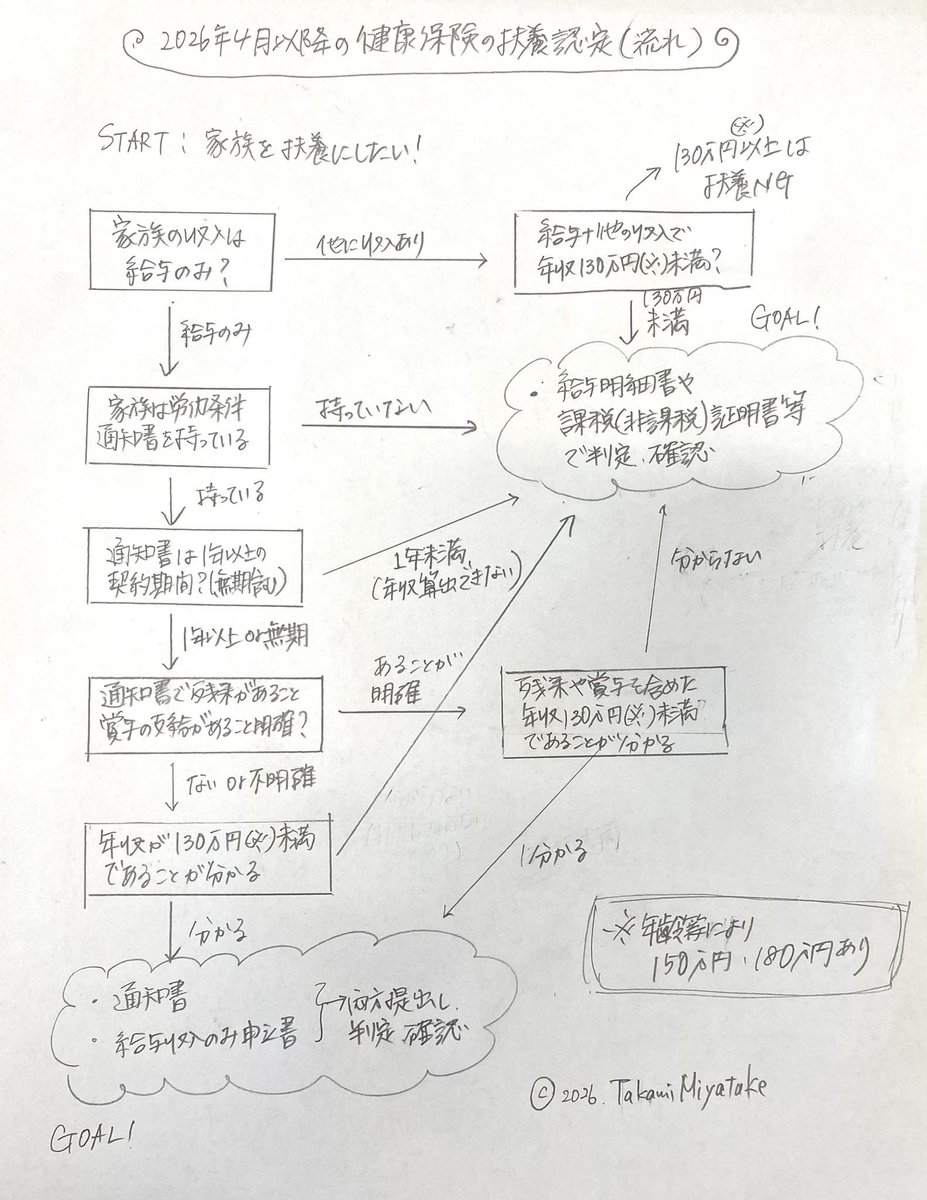 2026年4月以降の健康保険の扶養認定(流れ)
START : 家族を扶養にしたい!
(※)
130万円以上は
扶養NG
家族の収入は
給与のみ?
他に収入あり
給与+他の収入で
年収130万円(※)未満?
給与のみ
130万円
未満
GOAL!
家族は労働条件
通知書を持っている
持っていない
・給与明細書や
課税(非課税)証明書等
で判定、確認
持っている
通知書は1年以上の
契約期間?(無期含む)
1年未満、
(年収算出できない)
分からない
1年以上or無期
通知書で残業があること
賞与の支給があること明確?
あることが
明確
残業や賞与を含めた
年収130万円(※)未満
であることが分かる
ない or 不明確
年収が130万円(※)未満
であることが分かる
分かる
分かる
・通知書
・給与収入のみ申立書
両方提出し、
判定、確認
※年齢等により
150万円、180万円あり
© 2026. Takami Miyatake
GOAL!